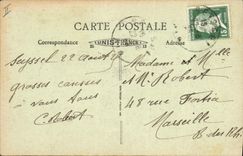 CARTE POSTALE
Correspondance
UNIS-FRANCE
Adresse
Seyssel 22 août
grosses caresses
à vous tous
C Robert
Madame et Mlle
et Mr Robert
45 rue Fortia
Marseille
B. des Rh.